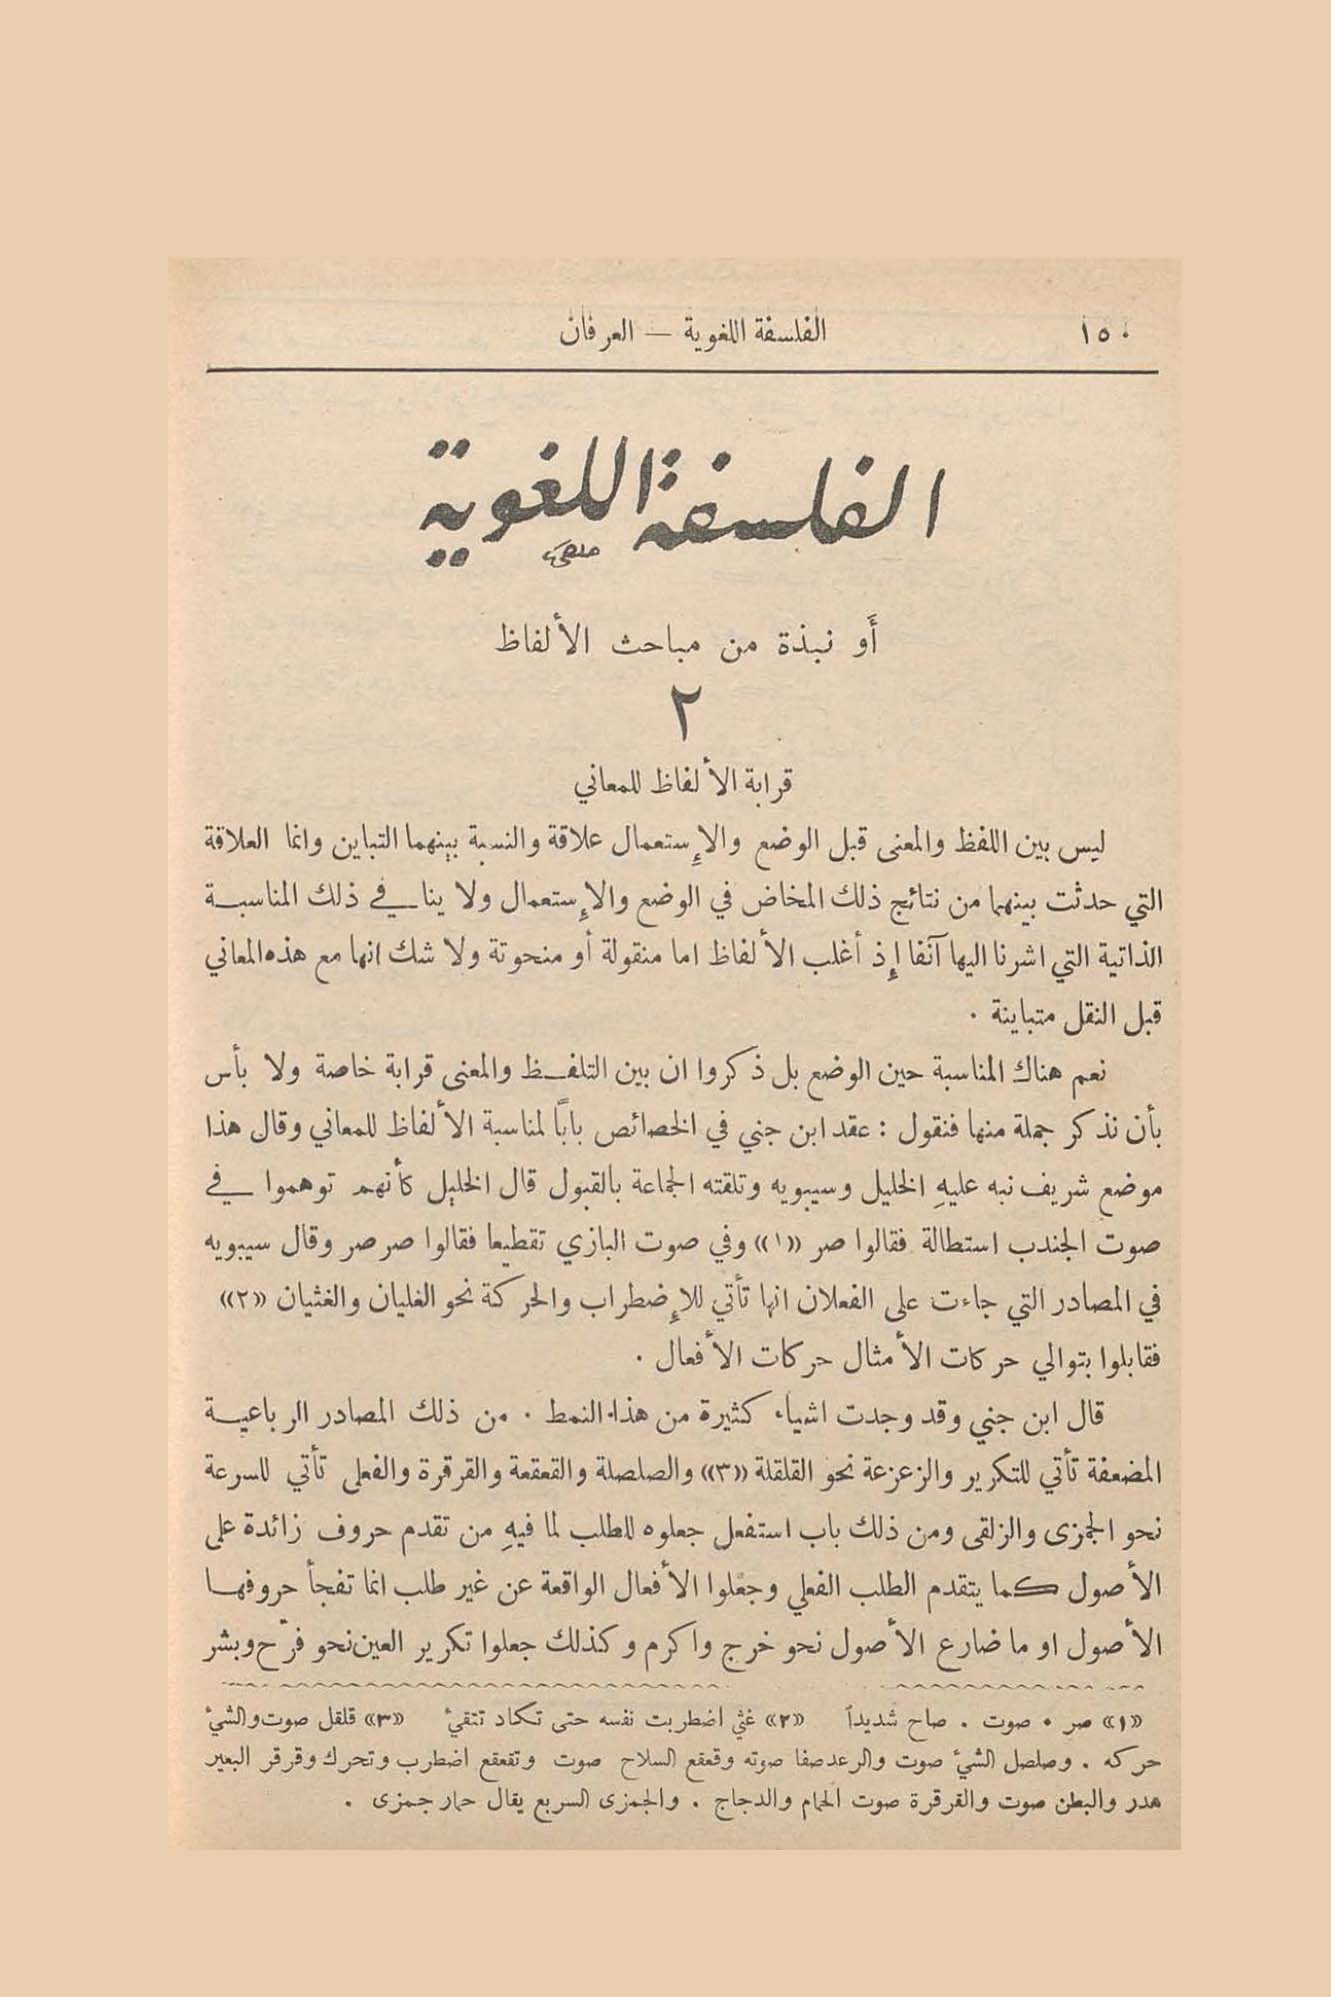 ١٥٠ الفلسفة اللغوية — العرفان
الفلسفة اللغوية
أَو نبذة من مباحث الألفاظ
٢
قرابة الألفاظ للمعاني
ليس بين اللفظ والمعنى قبل الوضع والإستعمال علاقة والنسبة بينهما التباين وانما العلاقة
التي حدثت بينهما من نتائج ذلك المخاض في الوضع والإستعمال ولا ينافي ذلك المناسبة
الذاتية التي اشرنا اليها آنفا إذ أغلب الألفاظ اما منقولة أو منحوتة ولا شك انها مع هذه المعاني
قبل النقل متباينة .
نعم هناك المناسبة حين الوضع بل ذكروا ان بين التلفظ والمعنى قرابة خاصة ولا بأس
بأن نذكر جملة منها فنقول : عقد ابن جني في الخصائص بابًا لمناسبة الألفاظ للمعاني وقال هذا
موضع شريف نبه عليهِ الخليل وسيبويه وتلقته الجماعة بالقبول قال الخليل كأنهم توهموا في
صوت الجندب استطالة فقالوا صر «١» وفي صوت البازي تقطيعا فقالوا صرصر وقال سيبويه
في المصادر التي جاءت على الفعلان انها تأتي للإضطراب والحركة نحو الغليان والغثيان «٢»
فقابلوا بتوالي حركات الأمثال حركات الأفعال .
قال ابن جني وقد وجدت اشياء كثيرة من هذا النمط . من ذلك المصادر الرباعية
المضعفة تأتي للتكرير والزعزعة نحو القلقلة «٣» والصلصلة والقعقعة والقرقرة والفعلى تأتي للسرعة
نحو الجمزى والزلقى ومن ذلك باب استفعل جعلوه للطلب لما فيهِ من تقدم حروف زائدة على
الأصول كما يتقدم الطلب الفعلي وجعلوا الأفعال الواقعة عن غير طلب انما تفجأ حروفها
الأصول او ما ضارع الأصول نحو خرج واكرم وكذلك جعلوا تكرير العين نحو فرّح وبشر
«١» صر . صوت . صاح شديداً «٢» غثي اضطربت نفسه حتى تكاد تتقيئ «٣» قلقل صوت والشيئ
حركه . وصلصل الشيئ صوت والرعد صفا صوته وقعقع السلاح صوت وتقعقع اضطرب وتحرك وقرقر البعير
هدر والبطن صوت والقرقرة صوت الحمام والدجاج . والجمزى السريع يقال حمار جمزى .